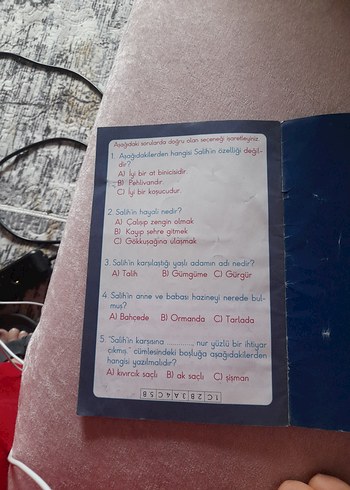 Aşağıdaki sorularda doğru olan seçeneği işaretleyiniz.
1. Aşağıdakilerden hangisi Salih'in özelliği değil-
dir?
A) İyi bir at binicisidir.
B) Pehlivandır.
C) İyi bir koşucudur.
2. Salih'in hayali nedir?
A) Çalışıp zengin olmak
B) Kayıp şehre gitmek
C) Gökkuşağına ulaşmak
3. Salih'in karşılaştığı yaşlı adamın adı nedir?
A) Talih B) Gümgüme C) Gürgür
4. Salih'in anne ve babası hazineyi nerede bul-
muş?
A) Bahçede B) Ormanda C) Tarlada
5. "Salih'in karşısına .........., nur yüzlü bir ihtiyar
çıkmış." cümlesindeki boşluğa aşağıdakilerden
hangisi yazılmalıdır?
A) kıvırcık saçlı B) ak saçlı C) şişman
1.C 2.B 3.A 4.C 5.B